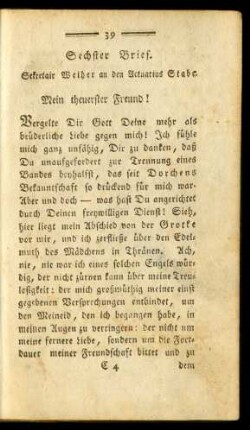 39
Sechster Brief.
Sekretair Weiher an den Actuarius Stabe.
Mein theuerster Freund!
Vergelte Dir Gott Deine mehr als
brüderliche Liebe gegen mich! Ich fühle
mich ganz unfähig, Dir zu danken, daß
Du unaufgefordert zur Trennung eines
Bandes beyhalfst, das seit Dorchens
Bekanntschaft so drückend für mich war.
Aber und doch — was hast Du angerichtet
durch Deinen freywilligen Dienst! Sieh,
hier liegt mein Abschied von der Grotke
vor mir, und ich zerfließe über den Edel-
muth des Mädchens in Thränen. Ach,
nie, nie war ich eines solchen Engels wür-
dig, der nicht zürnen kann über meine Treu-
losigkeit: der mich großmüthig meiner einst
gegebenen Versprechungen entbindet, um
den Meineid, den ich begangen habe, in
meinen Augen zu verringern: der nicht um
meine fernere Liebe, sondern um die Fort-
dauer meiner Freundschaft bittet und zu
C 4 dem